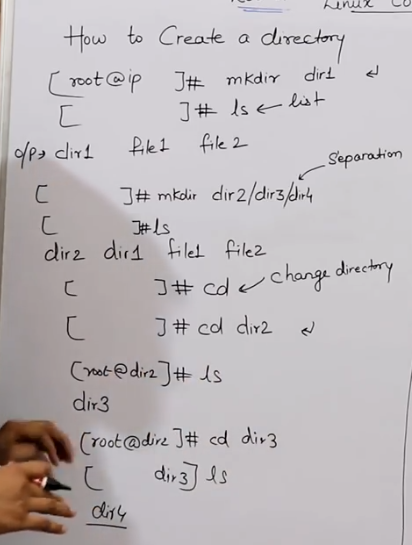 Linux Co
How to Create a directory
[root@ip ]# mkdir dir1 ↵
[ ]# ls ← list
o/p→ dir1 file1 file2
Separation
[ ]# mkdir dir2/dir3/dir4
[ ]# ls
dir2 dir1 file1 file2
[ ]# cd ← change directory
[ ]# cd dir2 ↵
[root@dir2]# ls
dir3
[root@dir2]# cd dir3
[ dir3] ls
dir4